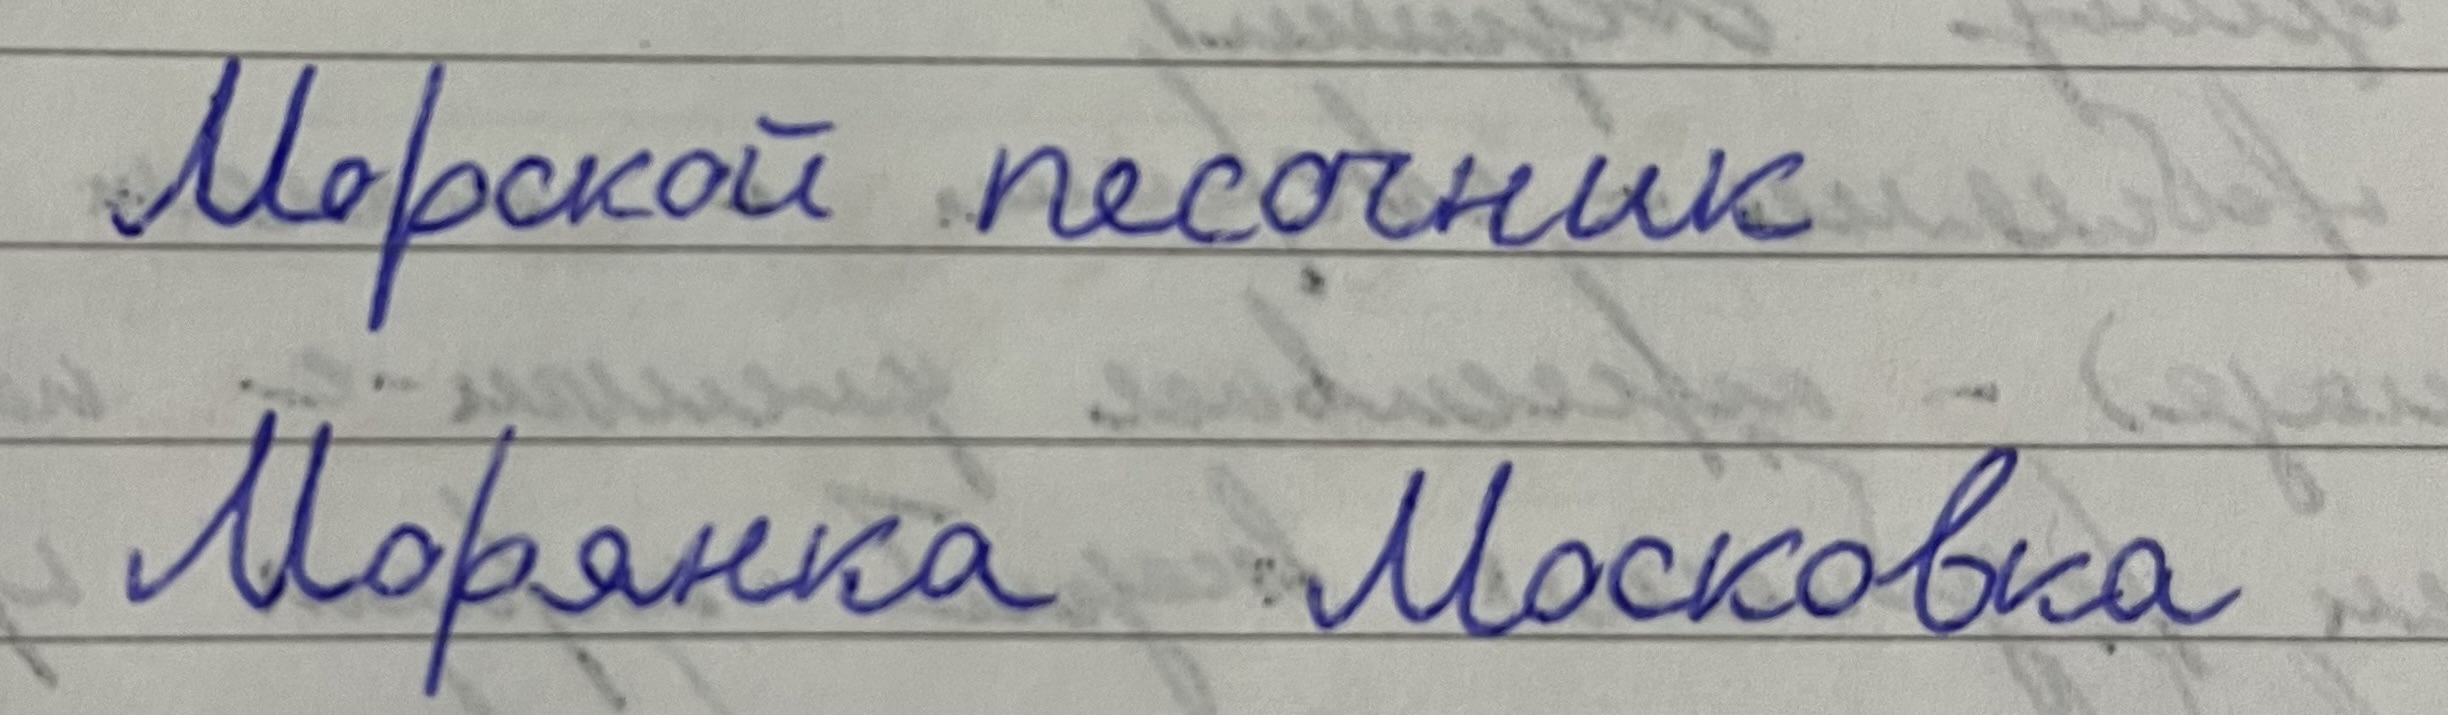 Морской песочник
Морянка Московка